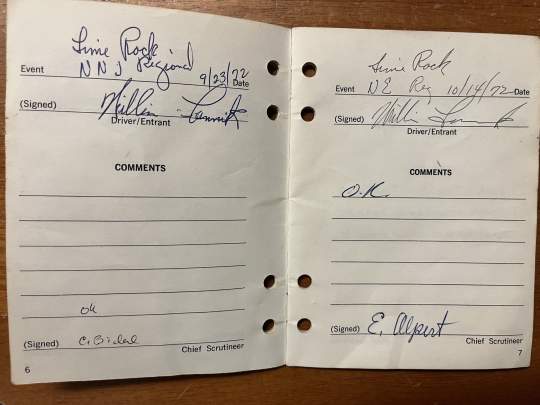 Lime Rock
NNJ Regional
Event 9/23/72 Date
(Signed) William
Driver/Entrant
COMMENTS
ok
(Signed) C.
Chief Scrutineer
6
Lime Rock
Event NE Reg 10/14/72 Date
(Signed) William
Driver/Entrant
COMMENTS
O.K.
(Signed) E. Alpert
Chief Scrutineer
7